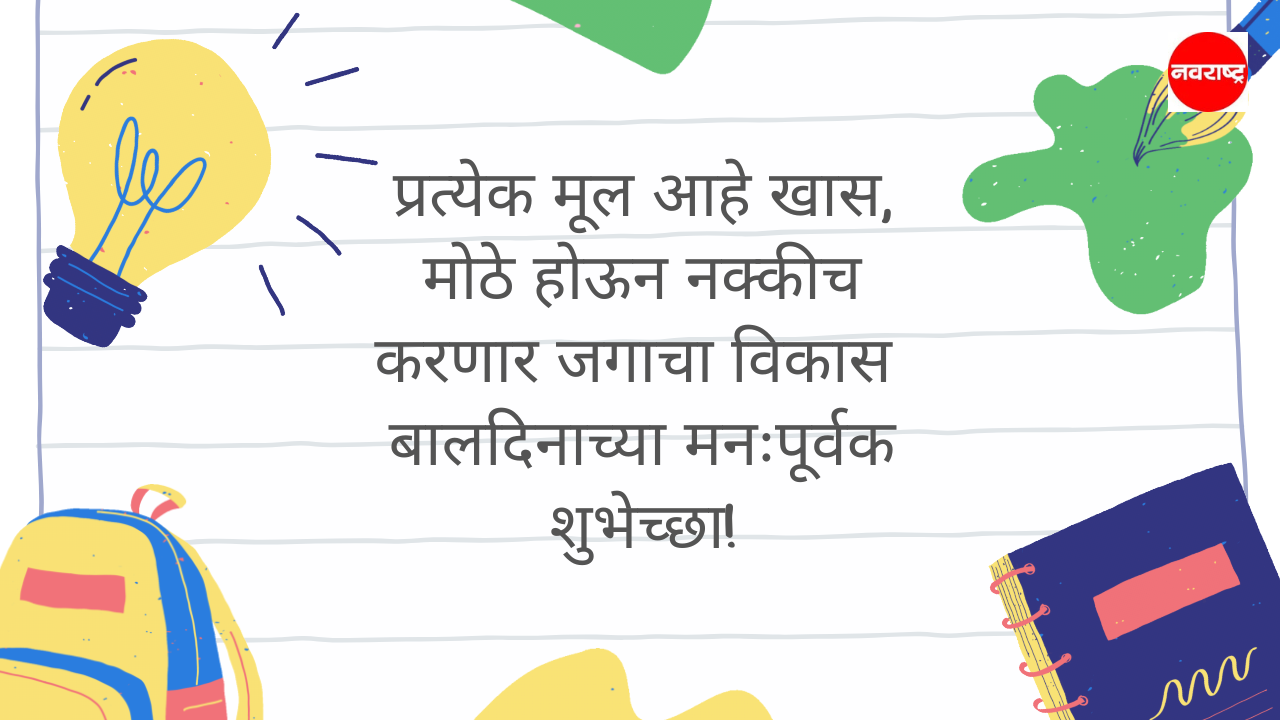 नवराष्ट्र
प्रत्येक मूल आहे खास,
मोठे होऊन नक्कीच
करणार जगाचा विकास
बालदिनाच्या मनःपूर्वक
शुभेच्छा!